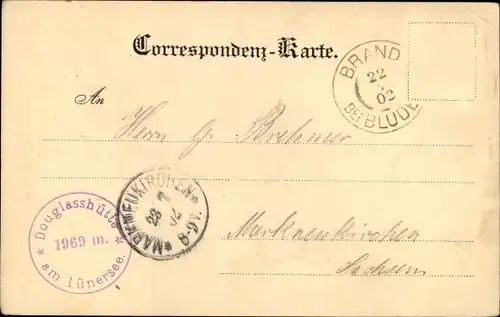 Correspondenz-Karte.
BRAND
22
02
BEI BLUDE
An
Herrn G. Brehmer
MARKNEUKIRCHEN
23
02
8-9V.
Douglasshütte
1969 m.
am Lünersee.
Markneukirchen
Sachsen